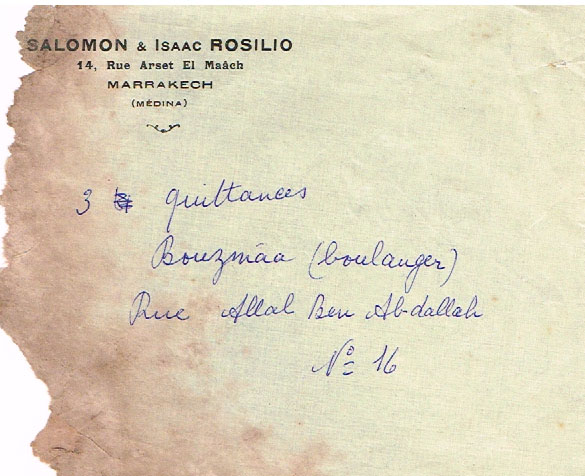 SALOMON & ISAAC ROSILIO
14, Rue Arset El Maâch
MARRAKECH
(MÉDINA)
3 quittances
Bouzmâa (boulanger)
Rue Allal Ben Abdallah
Nº 16